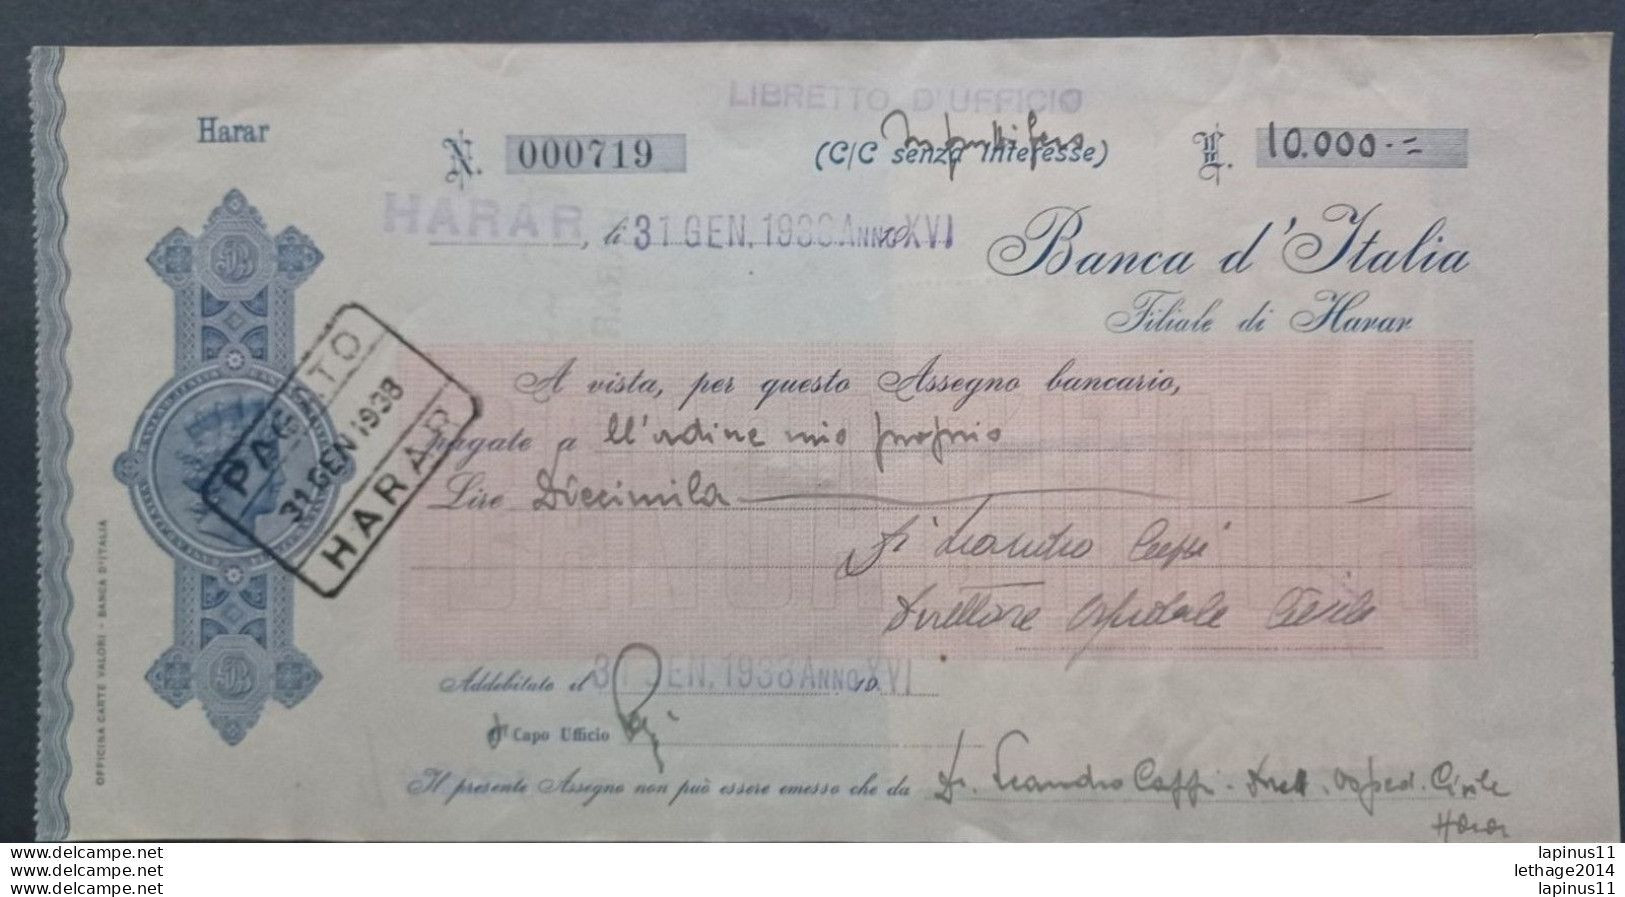 LIBRETTO D'UFFICIO
Harar
N. 000719
(C/C senza interesse)
L. 10.000.=
HARAR, li 31 GEN. 1938 ANNO XVI
Banca d'Italia
Filiale di Harar
A vista, per questo Assegno bancario,
pagate a ll'ordine mio proprio
Lire Diecimila
Dr Leandro Caffi
Direttore Ospedale Civile
PAGATO
31 GEN 1938
HARAR
Addebitato il 31 GEN. 1938 ANNO XVI
Il Capo Ufficio
Il presente Assegno non può essere emesso che da Dr. Leandro Caffi - Dirett. Osped. Civile
Harar
OFFICINA CARTE VALORI - BANCA D'ITALIA
www.delcampe.net
www.delcampe.net
www.delcampe.net
lapinus11
lethage2014
lapinus11